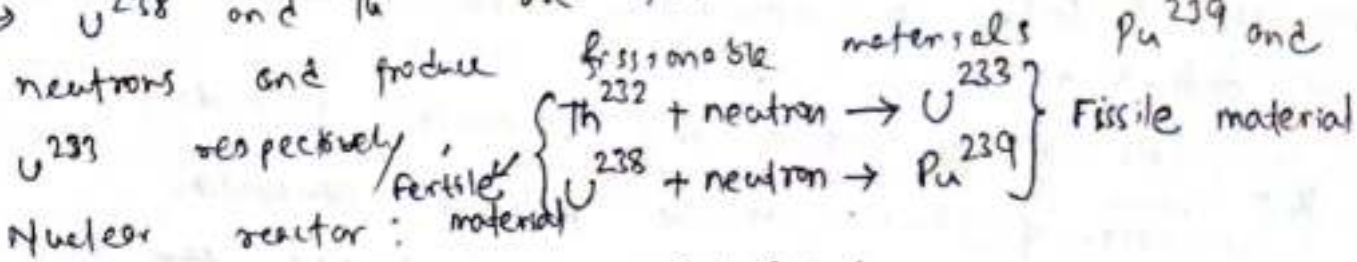 → U²³⁸ and Th
neutrons and produce fissionable materials Pu²³⁹ and
U²³³ respectively.
Fertile material { Th²³² + neutron → U²³³
U²³⁸ + neutron → Pu²³⁹ } Fissile material
Nuclear reactor :